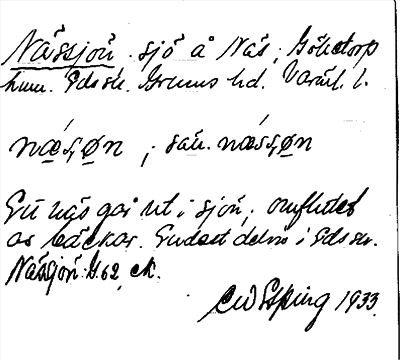 Nässjön. sjö å Näs, Götetorp
hmn. Eds sk. Grums hd. Värml. l.
næ´s,øn, sän. næ´ss,øn
Ett näs går ut i sjön, omflutet
av bäckar. Endast delvis i Eds sn.
Nässjön G.62 ek.
C W Esping 1933.